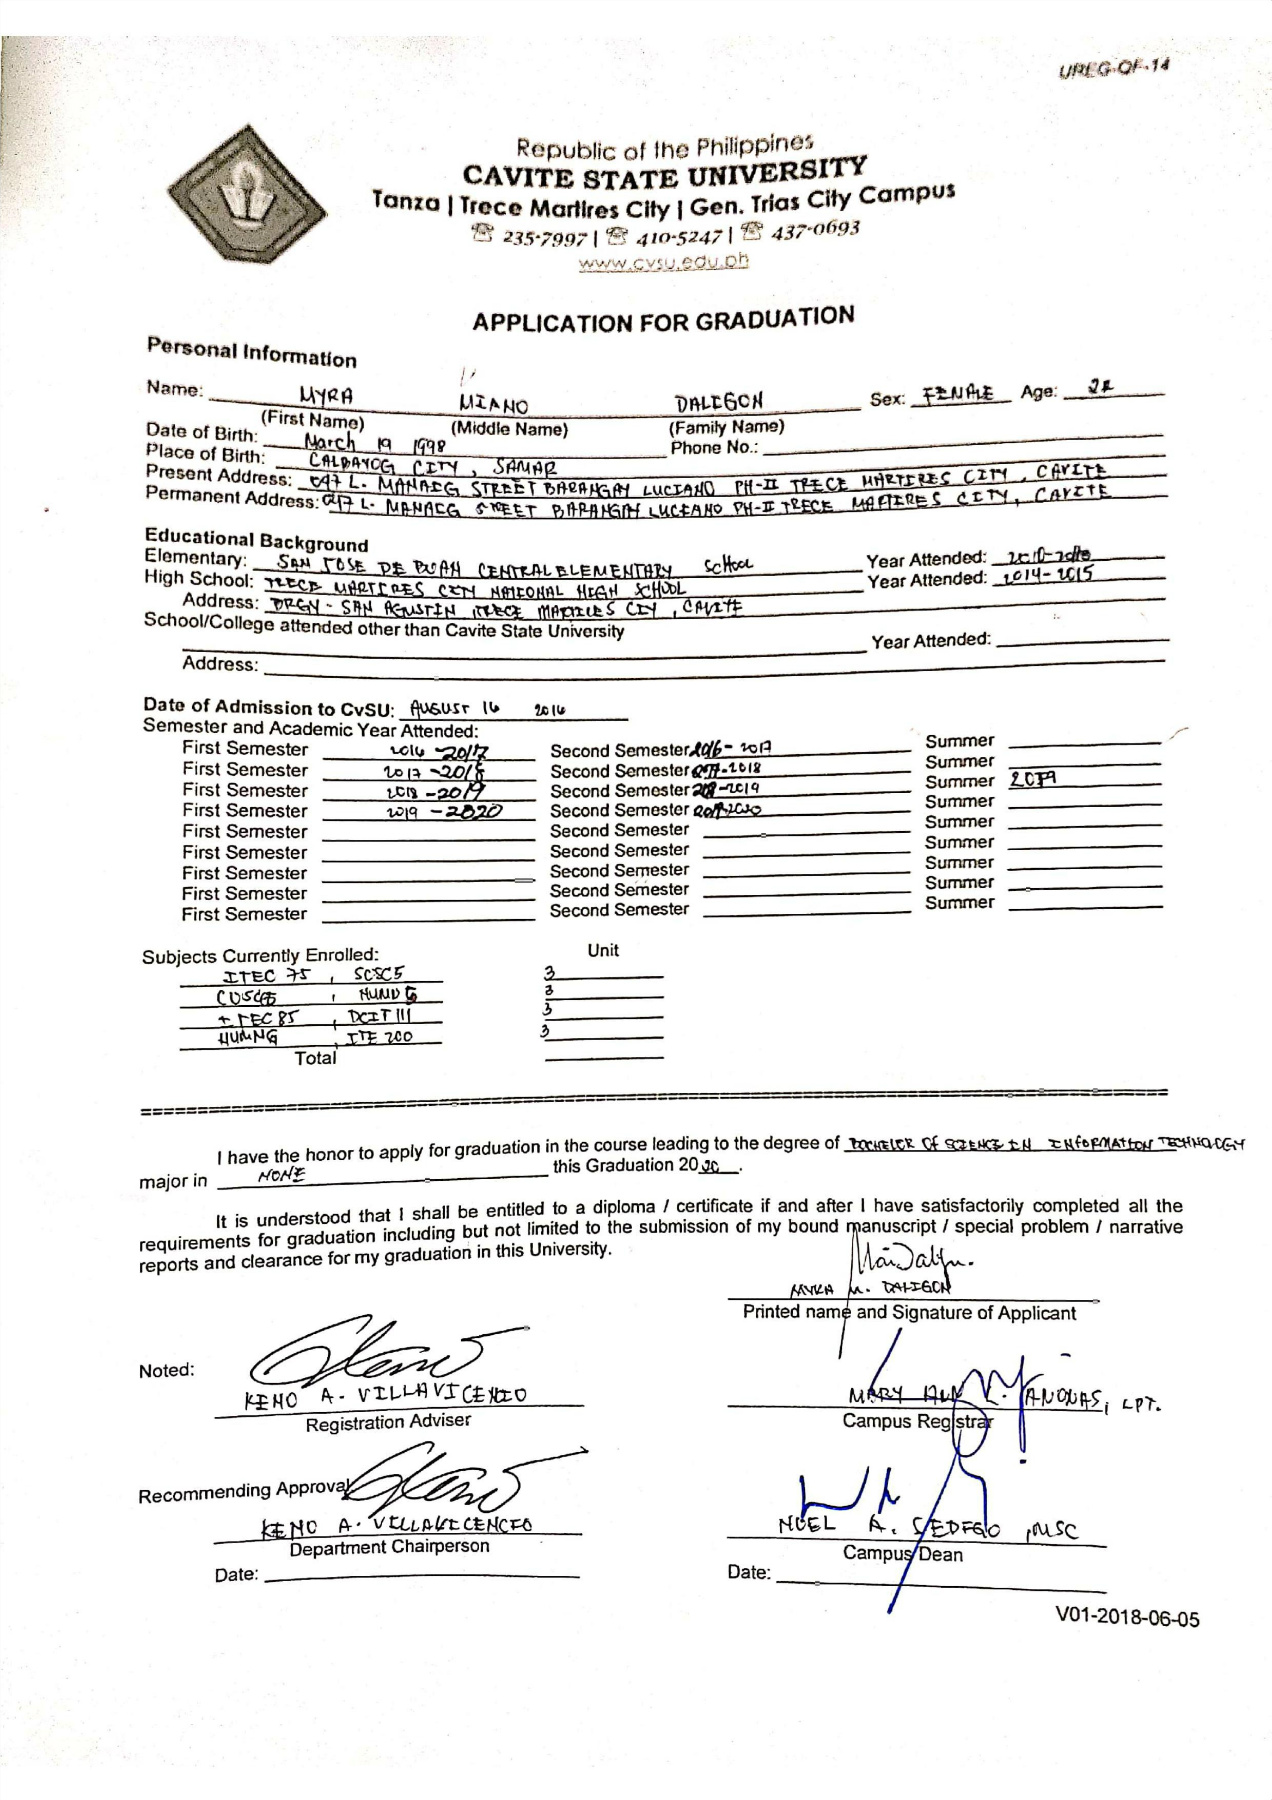 UREG-QF-14
Republic of the Philippines
CAVITE STATE UNIVERSITY
Tanza | Trece Martires City | Gen. Trias City Campus
☏ 235-7997 | ☏ 410-5247 | ☏ 437-0693
www.cvsu.edu.ph
APPLICATION FOR GRADUATION
Personal Information
Name: MYRA MIANO DALIGON Sex: FEMALE Age: 22
(First Name) (Middle Name) (Family Name)
Date of Birth: March 19 1998 Phone No.:
Place of Birth: CALBAYOG CITY, SAMAR
Present Address: 097 L. MANAIG STREET BARANGAY LUCIANO PH-II TRECE MARTIRES CITY, CAVITE
Permanent Address: 097 L. MANAIG STREET BARANGAY LUCIANO PH-II TRECE MARTIRES CITY, CAVITE
Educational Background
Elementary: SAN JOSE DE BUAN CENTRAL ELEMENTARY School Year Attended:
High School: TRECE MARTIRES CITY NATIONAL HIGH SCHOOL Year Attended: 2014-2015
Address: BRGY- SAN AGUSTIN TRECE MARTIRES CITY, CAVITE
School/College attended other than Cavite State University
Year Attended:
Address:
Date of Admission to CvSU: AUGUST 16 2016
Semester and Academic Year Attended:
First Semester 2016-2017 Second Semester 2016-2017 Summer
First Semester 2017-2018 Second Semester 2017-2018 Summer
First Semester 2018-2019 Second Semester 2018-2019 Summer 2019
First Semester 2019-2020 Second Semester 2019-2020 Summer
First Semester Second Semester Summer
First Semester Second Semester Summer
First Semester Second Semester Summer
First Semester Second Semester Summer
First Semester Second Semester Summer
Subjects Currently Enrolled: Unit
ITEC 75, SCSC5 3
, 3
85, DCIT 111 3
, ITE 200 3
Total
I have the honor to apply for graduation in the course leading to the degree of BACHELOR OF SCIENCE IN INFORMATION TECHNOLOGY
major in NONE this Graduation 2020.
It is understood that I shall be entitled to a diploma / certificate if and after I have satisfactorily completed all the
requirements for graduation including but not limited to the submission of my bound manuscript / special problem / narrative
reports and clearance for my graduation in this University.
MYRA M. DALIGON
Printed name and Signature of Applicant
Noted:
KENO A. VILLAVICENCIO
Registration Adviser
MARY ANN ANONAS, LPT.
Campus Registrar
Recommending Approval
KENO A. VILLAVICENCIO
Department Chairperson
Date:
NOEL A. SEDEGO, MSC
Campus Dean
Date:
V01-2018-06-05